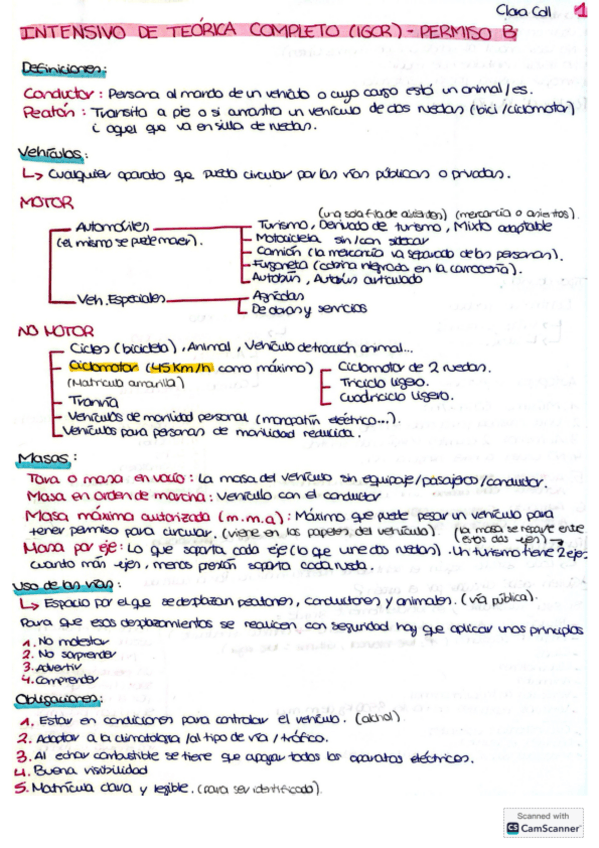 Clara Coll 1
INTENSIVO DE TEÓRICA COMPLETO (IGOR) - PERMISO B
Definiciones:
Conductor: Persona al mando de un vehículo o cuyo cargo está un animal/es.
Peatón: Transita a pie o si arrastra un vehículo de dos ruedas (bici/ciclomotor)
i aquel que va en silla de ruedas.
Vehículos:
↳ Cualquier aparato que puede circular por las vías públicas o privadas.
MOTOR
(una sola fila de asientos) (mercancía o asientos).
Automóviles Turismo, Derivado de turismo, Mixto adaptable
(el mismo se puede mover). Motocicleta sin/con sidecar
Camión (la mercancía va separado de las personas).
Furgoneta (cabina integrada en la carrocería).
Autobús, Autobús articulado
Veh. Especiales Agrícolas
De obras y servicios
NO MOTOR
Ciclos (bicicleta), Animal, Vehículo de tracción animal...
Ciclomotor (45 Km/h como máximo) Ciclomotor de 2 ruedas.
(Matrícula amarilla) Triciclo ligero.
Tranvía Cuadriciclo ligero.
Vehículos de movilidad personal (monopatín eléctrico...).
Vehículos para personas de movilidad reducida.
Masas:
Tara o masa en vacío: La masa del vehículo sin equipaje/pasajero/conductor.
Masa en orden de marcha: Vehículo con el conductor
Masa máxima autorizada (m.m.a): Máximo que puede pesar un vehículo para
tener permiso para circular. (viene en los papeles del vehículo). (La masa se reparte entre
estos dos ejes)
Masa por eje: Lo que soporta cada eje (lo que une dos ruedas). Un turismo tiene 2 ejes
cuanto más ejes, menos presión soporta cada rueda.
Uso de las vías:
↳ Espacio por el que se desplazan peatones, conductores y animales. (vía pública).
Para que esos desplazamientos se realicen con seguridad hay que aplicar unos principios
1. No molestar
2. No sorprender
3. Advertir
4. Comprender
Obligaciones:
1. Estar en condiciones para controlar el vehículo. (alcohol).
2. Adaptar a la climatología /al tipo de vía / tráfico.
3. Al echar combustible se tiene que apagar todos los aparatos eléctricos.
4. Buena visibilidad
5. Matrícula clara y legible. (para ser identificado).
Scanned with
CS CamScanner